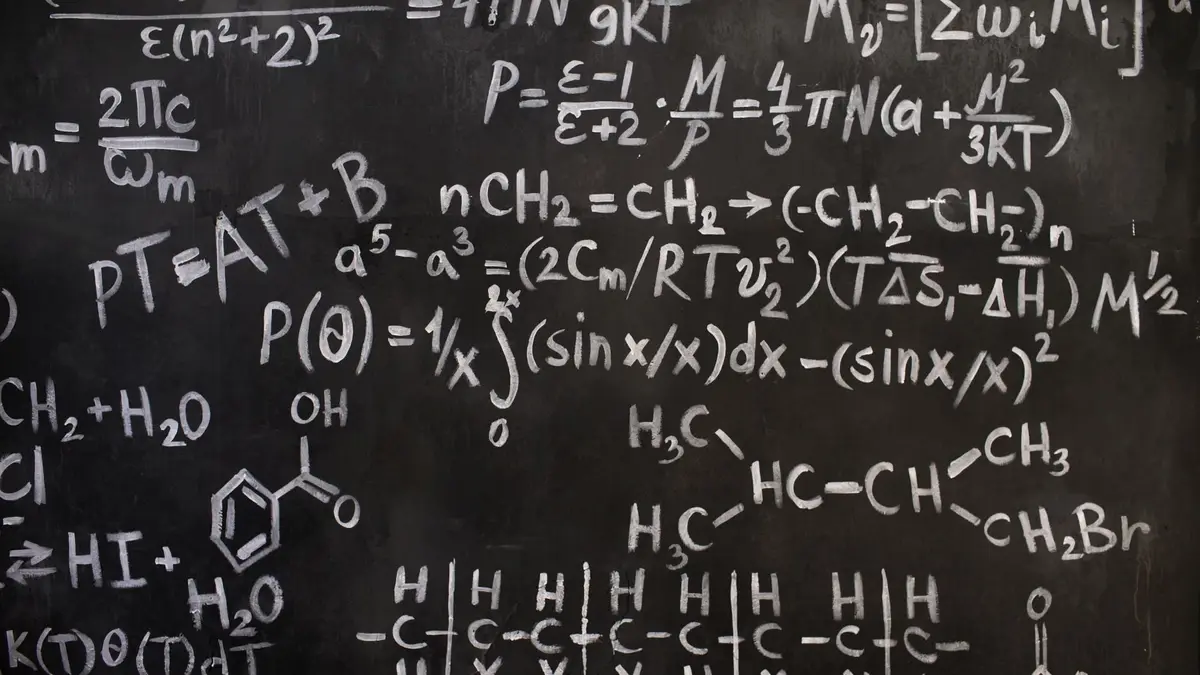 ε(n²+2)²
= 4πN 9KT
Mᵥ=[Σωᵢ Mᵢ]
m = 2πc/ωm
P = ε-1/ε+2 · M/P = 4/3 πN(a + M²/3KT)
pT=AT+B
nCH₂=CH₂→(-CH₂-CH₂-)n
a⁵-a³=(2Cm/RTv₂²)(TΔS̅₁-ΔH̅₁)M½
P(θ)=1/x ∫₀²ˣ(sin x/x)dx-(sinx/x)²
CH₂+H₂O
Cl
OH
O
H₃C CH₃
HC-CH
H₃C CH₂Br
⇄ HI + H₂O
H H H H H H H H
-C-C-C-C-C-C-C-C-
O
K(T)θ(T)dT